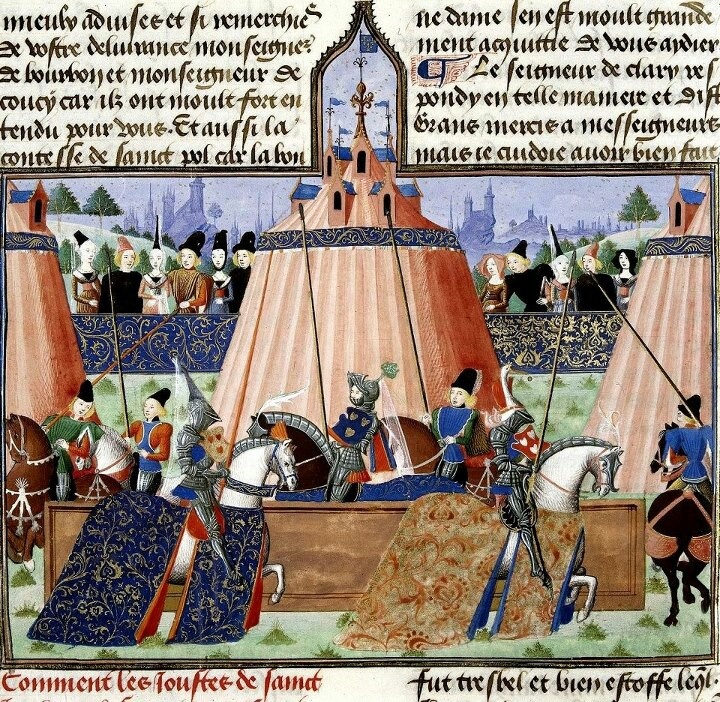 mieulx aduises et si remerchies
de vostre deliurance monseigneur
de bourbon et monseigneur de
coucy car ilz ont moult fort en
tendu pour vous. Et aussi la
contesse de sainct pol car la bon
ne dame sen est moult grande
ment acquittie de vous aydier
Le seigneur de clary res
pondy en telle maniere et dist
Grans mercis a messeigneurs
mais ie cuidoie auoir bien fait
Comment les Joustes de sainct
fut tresbel et bien estoffe leql.